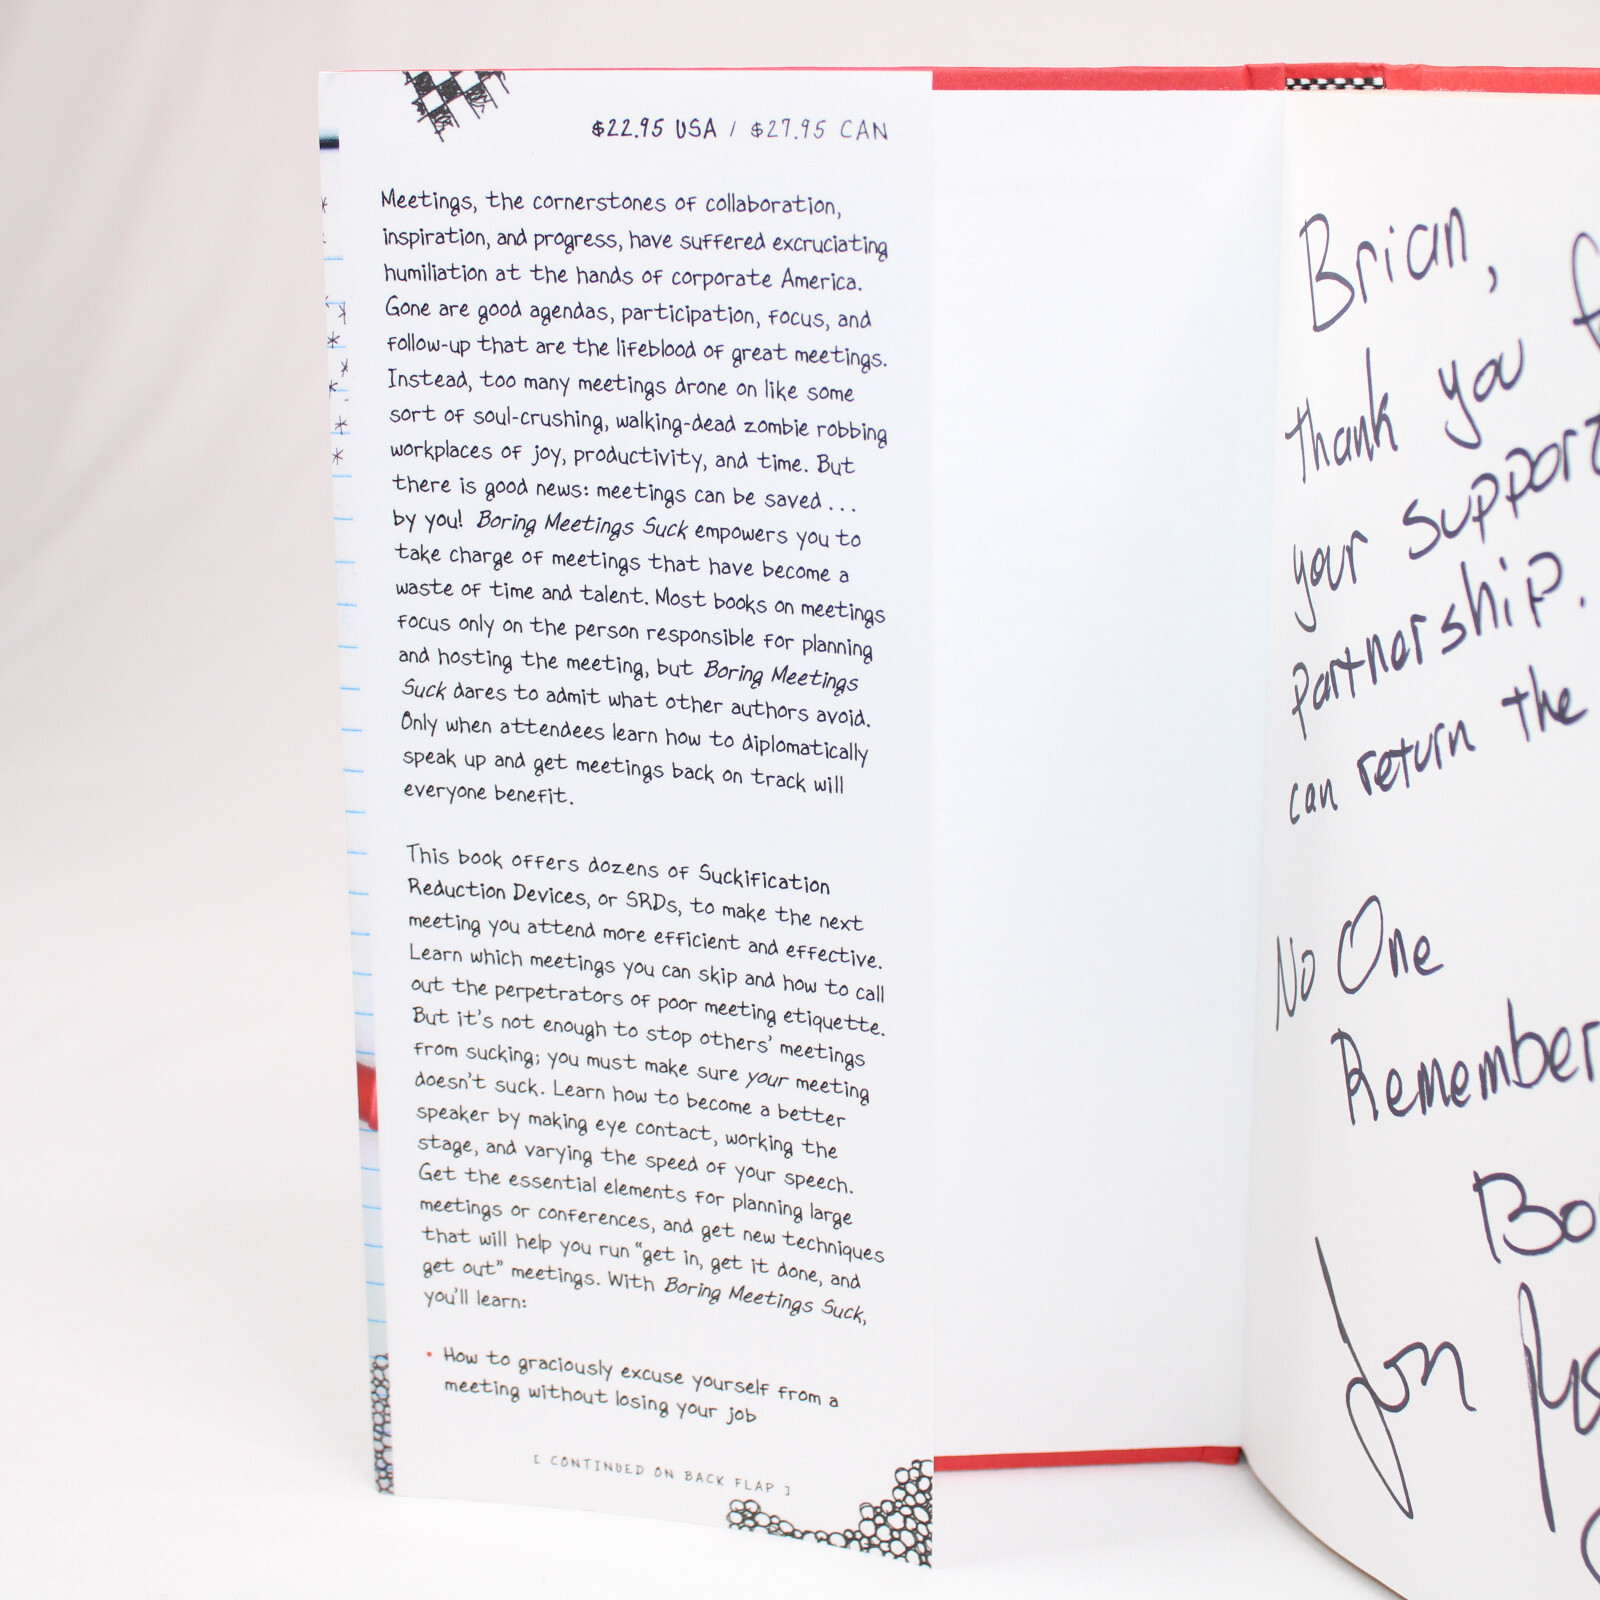 $22.95 USA / $27.95 CAN
Meetings, the cornerstones of collaboration,
inspiration, and progress, have suffered excruciating
humiliation at the hands of corporate America.
Gone are good agendas, participation, focus, and
follow-up that are the lifeblood of great meetings.
Instead, too many meetings drone on like some
sort of soul-crushing, walking-dead zombie robbing
workplaces of joy, productivity, and time. But
there is good news: meetings can be saved ...
by you! Boring Meetings Suck empowers you to
take charge of meetings that have become a
waste of time and talent. Most books on meetings
focus only on the person responsible for planning
and hosting the meeting, but Boring Meetings
Suck dares to admit what other authors avoid.
Only when attendees learn how to diplomatically
speak up and get meetings back on track will
everyone benefit.
This book offers dozens of Suckification
Reduction Devices, or SRDs, to make the next
meeting you attend more efficient and effective.
Learn which meetings you can skip and how to call
out the perpetrators of poor meeting etiquette.
But it's not enough to stop others' meetings
from sucking; you must make sure your meeting
doesn't suck. Learn how to become a better
speaker by making eye contact, working the
stage, and varying the speed of your speech.
Get the essential elements for planning large
meetings or conferences, and get new techniques
that will help you run "get in, get it done, and
get out" meetings. With Boring Meetings Suck,
you'll learn:
• How to graciously excuse yourself from a
meeting without losing your job
[ CONTINUED ON BACK FLAP ]
Brian,
thank you
your support
partnership.
can return the
No One
Remember
Jon